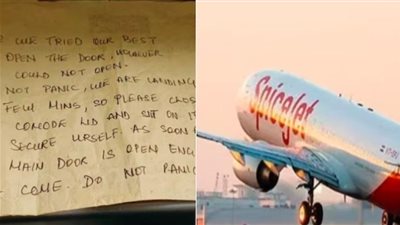 WE TRIED OUR BEST
OPEN THE DOOR, HOWEVER
COULD NOT OPEN.
NOT PANIC, WE ARE LANDING
FEW MINS, SO PLEASE CLOSE
COMODE LID AND SIT ON IT
SECURE URSELF. AS SOON
MAIN DOOR IS OPEN, ENG
COME. DO NOT PANIC
SpiceJet